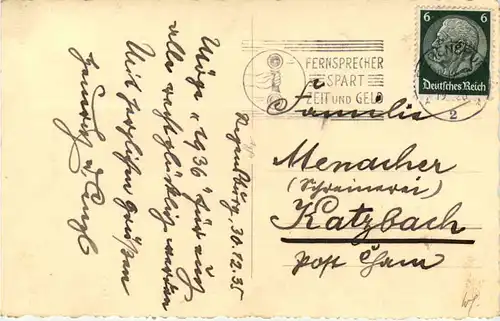 Regensburg, 30.12.35
Möge „1936" für euch
alle recht glücklich werden
Mit herzlichen Grüßen
FERNSPRECHER
SPART
ZEIT UND GELD
6 6
Deutsches Reich
2
Familie
Menacher
(Schreinerei)
Katzbach
Post Cham